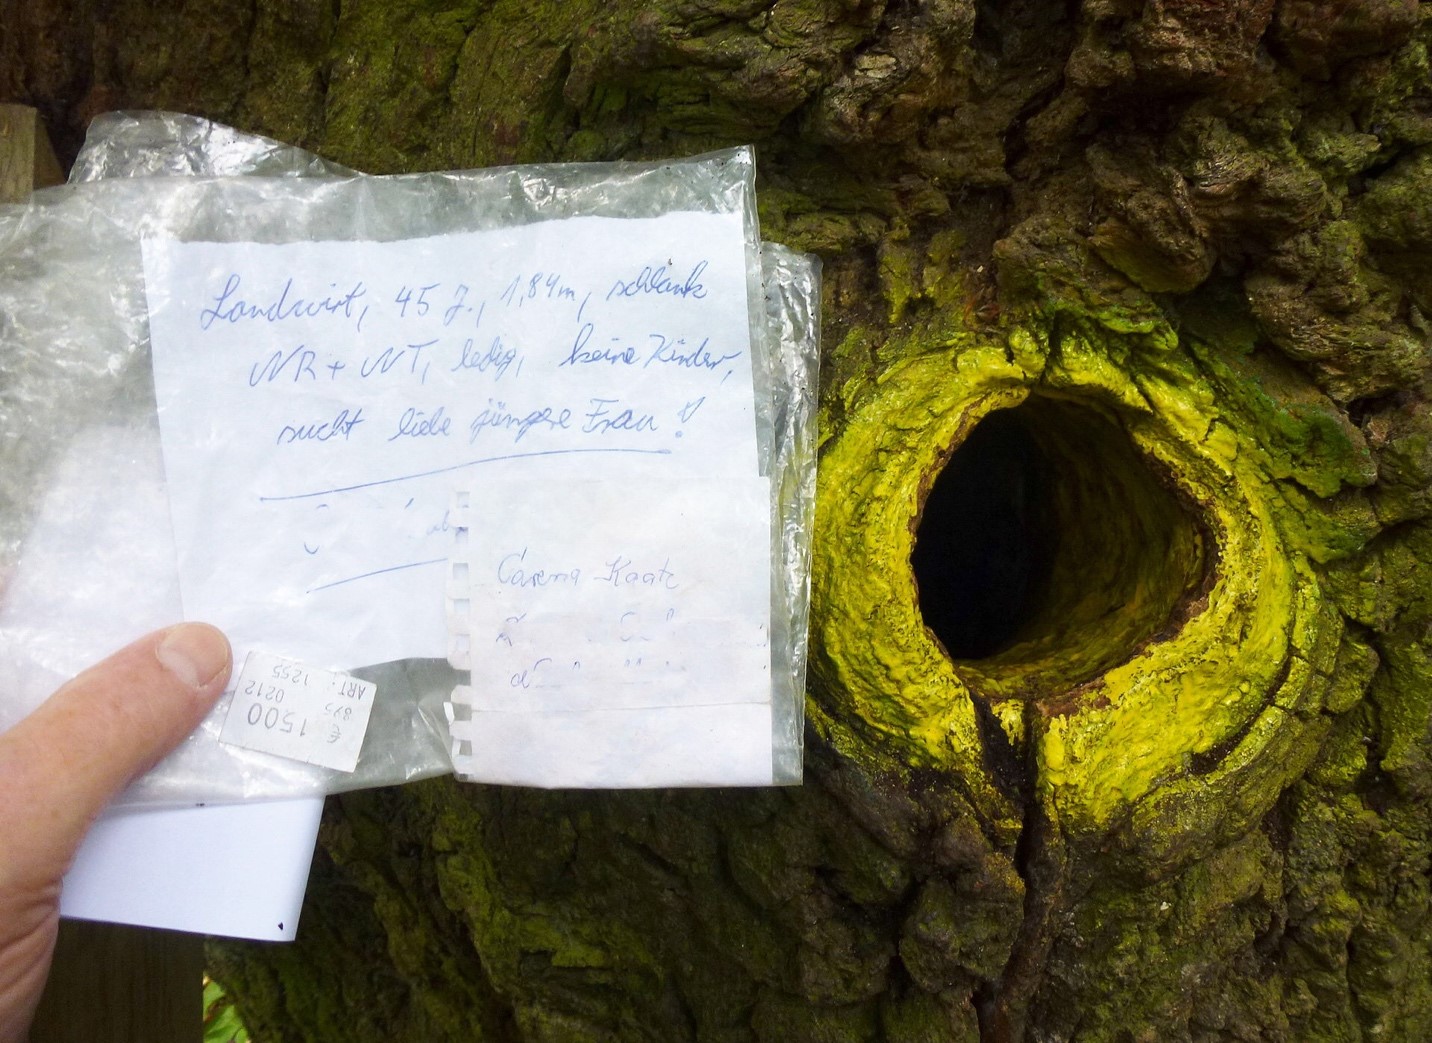 Landwirt, 45 J., 1,84m, schlank
NR + NT, ledig, keine Kinder,
sucht liebe jüngere Frau!
Carena Kaatz
€ 1500
895
0212
ART: 1255